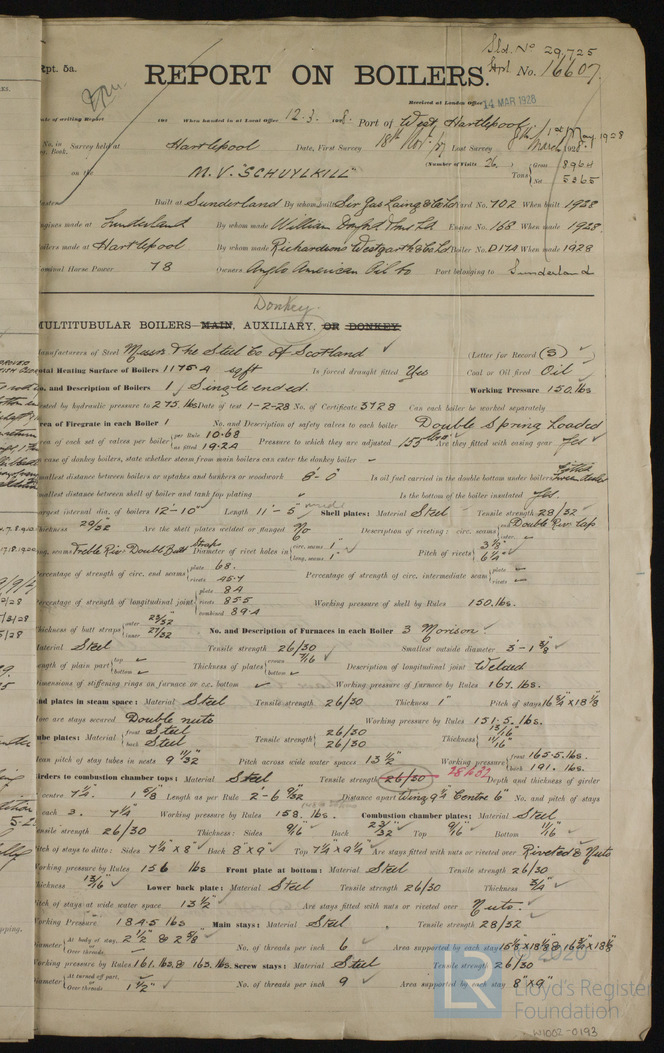 Sld. No 29,725
Rpt. 5a.
Hpl. No. 16607
REPORT ON BOILERS.
Received at London Office 14 MAR 1928
Date of writing Report 192 When handed in at Local Office 12.3. 1928. Port of West Hartlepool
No. in Reg. Book. Survey held at Hartlepool Date, First Survey 18th Nov. 27 Last Survey 8th March 1928. 1st May 1928
on the M.V. "SCHUYLKILL" (Number of Visits 26.) Tons Gross 8964 Net 5365
Built at Sunderland By whom built Sir Jas Laing & Co Ld Yard No. 702 When built 1928
Engines made at Sunderland By whom made William Doxford & Sons Ld Engine No. 163 When made 1928
Boilers made at Hartlepool By whom made Richardsons Westgarth & Co Ld Boiler No. D174 When made 1928
Nominal Horse Power 78 Owners Anglo American Oil Co Port belonging to Sunderland
Donkey.
MULTITUBULAR BOILERS MAIN, AUXILIARY, OR DONKEY
Manufacturers of Steel Messrs The Steel Co. of Scotland (Letter for Record (S) )
Total Heating Surface of Boilers 1175.4 sq ft Is forced draught fitted Yes Coal or Oil fired Oil
No. and Description of Boilers 1 Single ended. Working Pressure 150. lbs
Tested by hydraulic pressure to 275. lbs Date of test 1-2-28 No. of Certificate 3728 Can each boiler be worked separately
Area of Firegrate in each Boiler No. and Description of safety valves to each boiler Double Spring Loaded
Area of each set of valves per boiler per Rule 10.68 as fitted 19.24 Pressure to which they are adjusted 155 lbs. Are they fitted with easing gear Yes
In case of donkey boilers, state whether steam from main boilers can enter the donkey boiler
Smallest distance between boilers or uptakes and bunkers or woodwork 8'-0" Is oil fuel carried in the double bottom under boilers
Smallest distance between shell of boiler and tank top plating Is the bottom of the boiler insulated Yes.
Largest internal dia. of boilers 12'-10" Length 11'-5" Shell plates: Material Steel Tensile strength 28/32
Thickness 29/32 Are the shell plates welded or flanged No Description of riveting: circ. seams end Double Riv. Lap inter.
long. seams Treble Riv. Double Butt Straps Diameter of rivet holes in circ. seams 1" long. seams 1" Pitch of rivets 3 7/8" 6 1/4"
Percentage of strength of circ. end seams plate 68. rivets 45.7 Percentage of strength of circ. intermediate seam plate rivets
Percentage of strength of longitudinal joint plate 84 rivets 85.5 combined 89.4 Working pressure of shell by Rules 150. lbs.
Thickness of butt straps outer 23/32 inner 27/32 No. and Description of Furnaces in each Boiler 3 Morrison.
Material Steel Tensile strength 26/30 Smallest outside diameter 3'-1 3/8"
Length of plain part top bottom Thickness of plates crown bottom 7/16" Description of longitudinal joint Welded
Dimensions of stiffening rings on furnace or c.c. bottom Working pressure of furnace by Rules 167. lbs.
End plates in steam space: Material Steel Tensile strength 26/30 Thickness 1" Pitch of stays 16 3/4" x 18 1/8
How are stays secured Double nuts Working pressure by Rules 151.5. lbs.
Tube plates: Material front Steel back Steel Tensile strength 26/30 26/30 Thickness 13/16" 11/16"
Mean pitch of stay tubes in nests 9 11/32" Pitch across wide water spaces 13 1/2" Working pressure front 165.5. lbs. back 191. lbs.
Girders to combustion chamber tops: Material Steel Tensile strength 26/30 28 to 32 Depth and thickness of girder
at centre 7 1/4. 1 5/8 Length as per Rule 2'-6 9/32 Distance apart Wing 9 1/4 Centre 6" No. and pitch of stays
in each 3. 7 1/4 Working pressure by Rules 158. lbs. Combustion chamber plates: Material Steel
Tensile strength 26/30 Thickness: Sides 9/16" Back 23/32" Top 9/16" Bottom 11/16"
Pitch of stays to ditto: Sides 7 1/4 x 8" Back 8" x 9" Top 7 1/4 x 9 1/4 Are stays fitted with nuts or riveted over Riveted & Nuts
Working pressure by Rules 156 lbs Front plate at bottom: Material Steel Tensile strength 26/30
Thickness 13/16" Lower back plate: Material Steel Tensile strength 26/30 Thickness 3/4"
Pitch of stays at wide water space 13 1/2" Are stays fitted with nuts or riveted over Nuts.
Working Pressure 184.5 lbs Main stays: Material Steel. Tensile strength 28/32
Diameter At body of stay, or Over threads 2 1/2" & 2 5/8" No. of threads per inch 6 Area supported by each stay 15 5/8 x 18 1/8 & 16 3/4 x 18 1/8
Working pressure by Rules 161. lbs. & 163. lbs. Screw stays: Material Steel Tensile strength 26/30
Diameter At turned off part, or Over threads 1 1/2" No. of threads per inch 9 Area supported by each stay 8" x 9"
© 2020
LR
Lloyd's Register
Foundation
W1002-0193